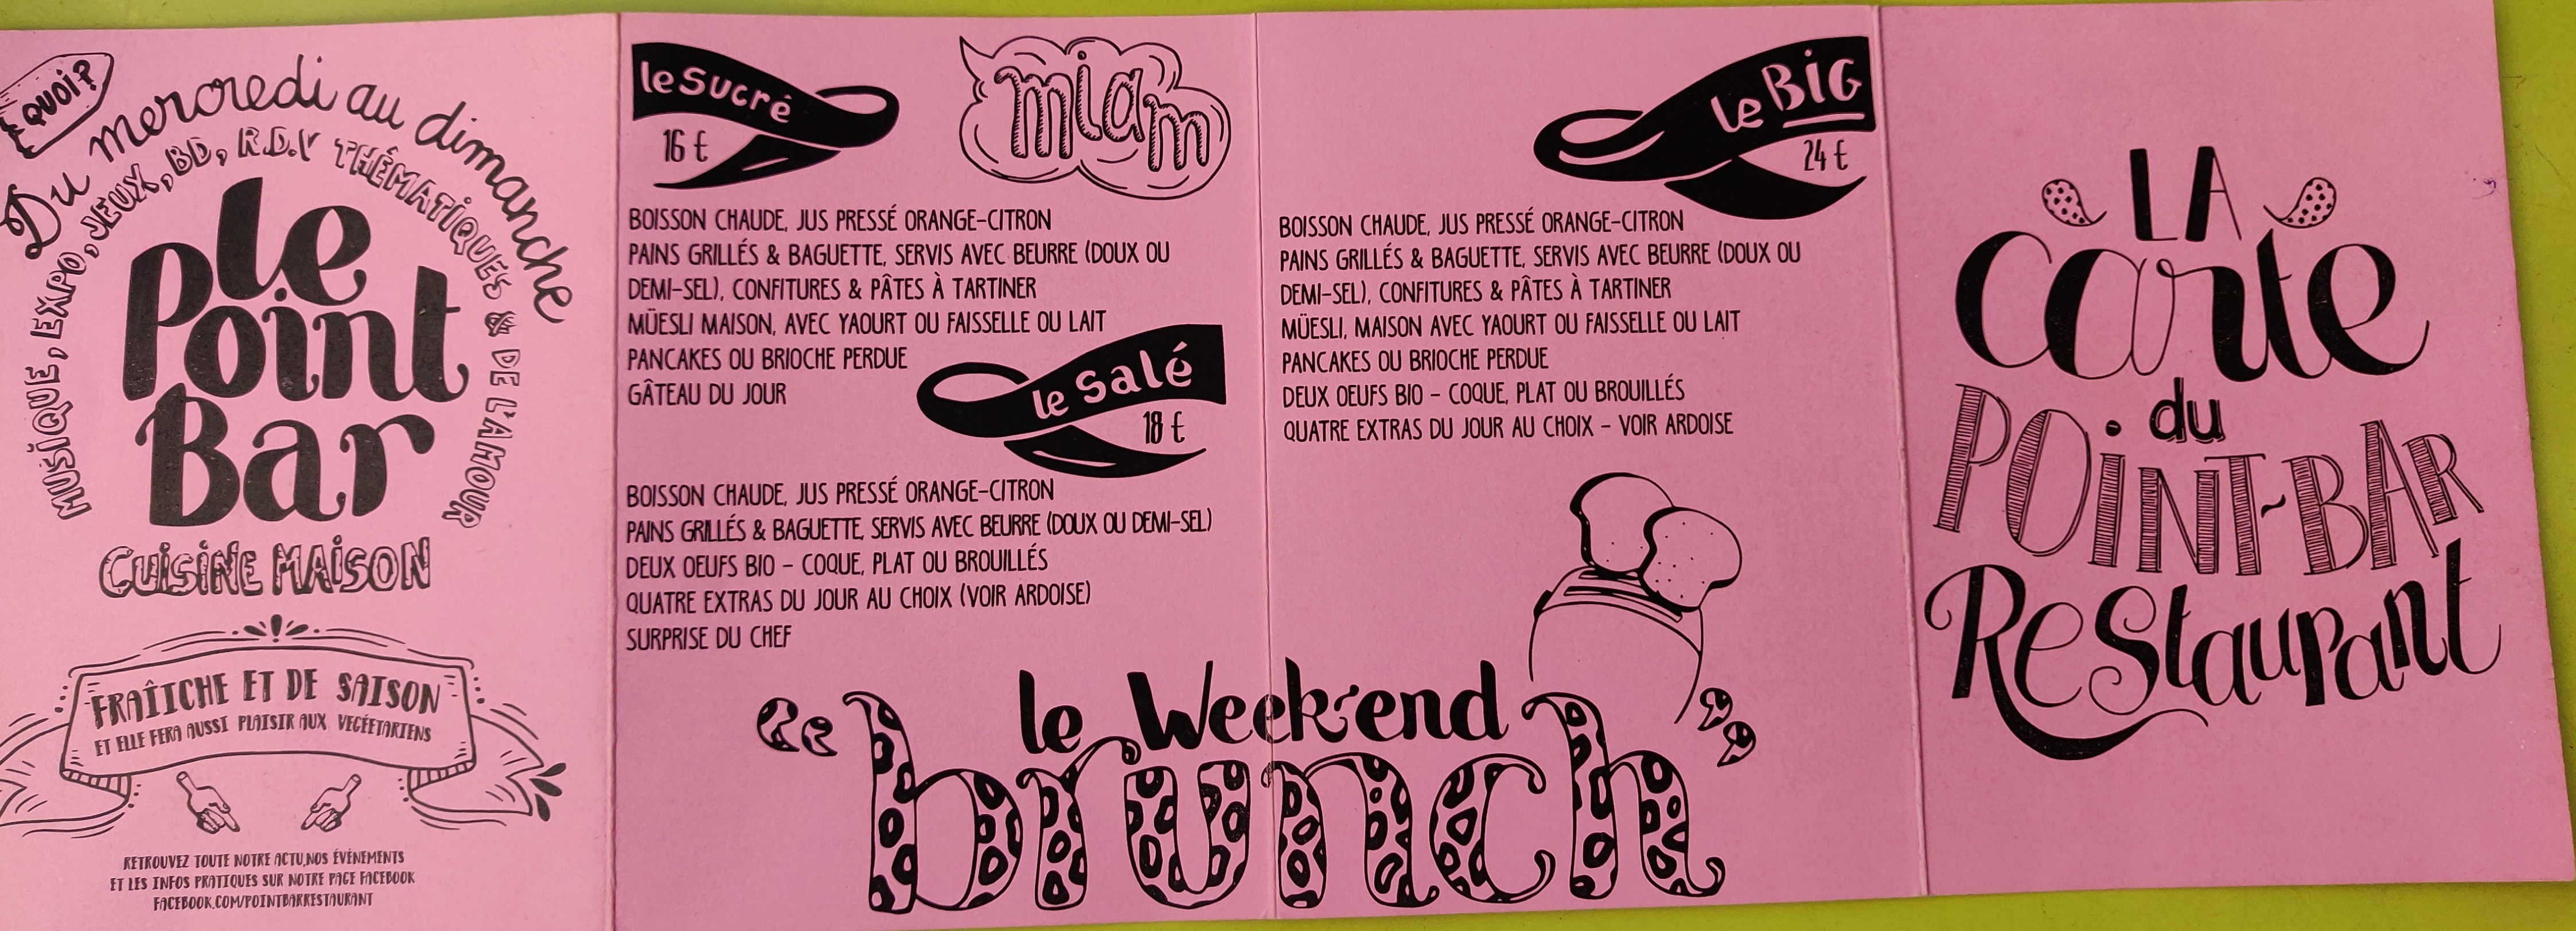 QUOI?
Du mercredi au dimanche
MUSIQUE, EXPO, JEUX, BD, R.D.V THÉMATIQUES & DE L'AMOUR
le
Point
Bar
CUISINE MAISON
FRAÎICHE ET DE SAISON
ET ELLE FERA AUSSI PLAISIR AUX VEGÉETARIENS
RETROUVEZ TOUTE NOTRE ACTU,NOS ÉVÈNEMENTS
ET LES INFOS PRATIQUES SUR NOTRE PAGE FACEBOOK
FACEBOOK.COM/POINTBARRESTAURANT
le Sucré
16 €
miam
BOISSON CHAUDE, JUS PRESSÉ ORANGE-CITRON
PAINS GRILLÉS & BAGUETTE, SERVIS AVEC BEURRE (DOUX OU
DEMI-SEL), CONFITURES & PÂTES À TARTINER
MÜESLI MAISON, AVEC YAOURT OU FAISSELLE OU LAIT
PANCAKES OU BRIOCHE PERDUE
GÂTEAU DU JOUR
le Salé
18 €
BOISSON CHAUDE, JUS PRESSÉ ORANGE-CITRON
PAINS GRILLÉS & BAGUETTE, SERVIS AVEC BEURRE (DOUX OU DEMI-SEL)
DEUX OEUFS BIO - COQUE, PLAT OU BROUILLÉS
QUATRE EXTRAS DU JOUR AU CHOIX (VOIR ARDOISE)
SURPRISE DU CHEF
le BIG
24 €
BOISSON CHAUDE, JUS PRESSÉ ORANGE-CITRON
PAINS GRILLÉS & BAGUETTE, SERVIS AVEC BEURRE (DOUX OU
DEMI-SEL), CONFITURES & PÂTES À TARTINER
MÜESLI, MAISON AVEC YAOURT OU FAISSELLE OU LAIT
PANCAKES OU BRIOCHE PERDUE
DEUX OEUFS BIO - COQUE, PLAT OU BROUILLÉS
QUATRE EXTRAS DU JOUR AU CHOIX - VOIR ARDOISE
le Week-end
"brunch"
LA
carte
du
POINT-BAR
Restaurant